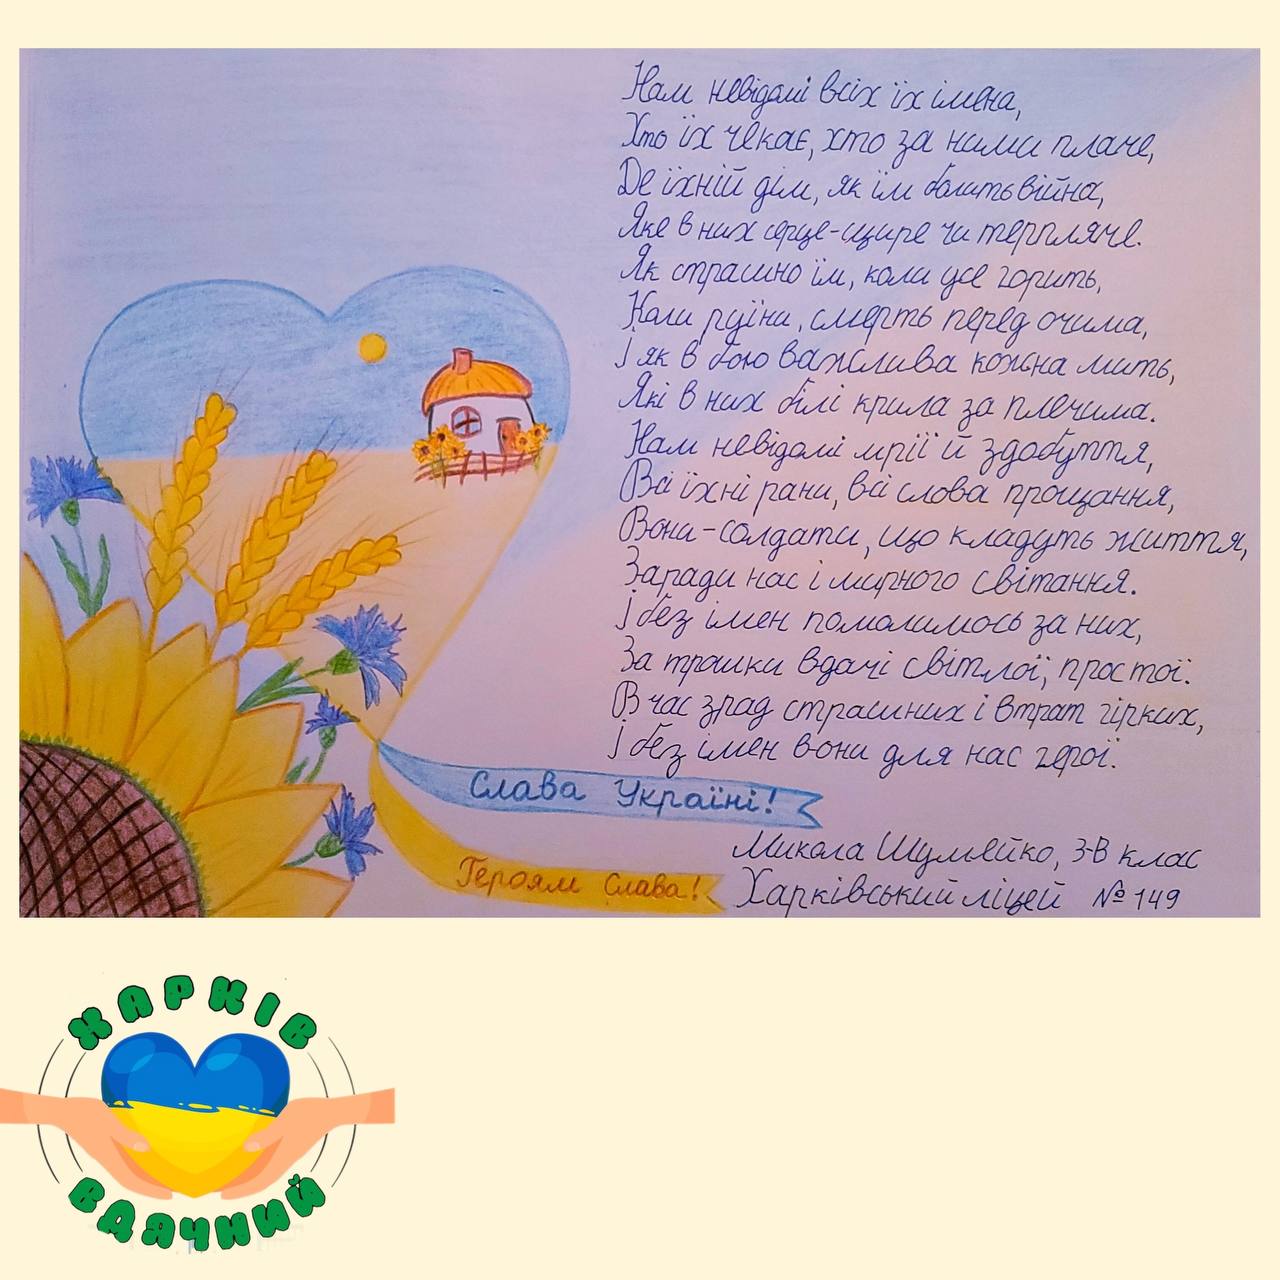 Нам невідомі всіх їх імена,
Хто їх чекає, хто за ними плаче,
Де їхній дім, як їм болить війна,
Яке в них серце-щире чи терпляче.
Як страшно їм, коли усе горить,
Коли руїни, смерть перед очима,
І як в бою важлива кожна мить,
Які в них білі крила за плечима.
Нам невідомі мрії й здобуття,
Всі їхні рани, всі слова прощання,
Вони-солдати, що кладуть життя,
Заради нас і мирного світання.
І без імен помолимось за них,
За трошки вдачі світлої, простої.
В час зрад страшних і втрат гірких,
І без імен вони для нас герої.
Слава Україні!
Героям Слава!
Микола Шумейко, 3-В клас
Харківський ліцей № 149
ХАРКІВ
ВДЯЧНИЙ